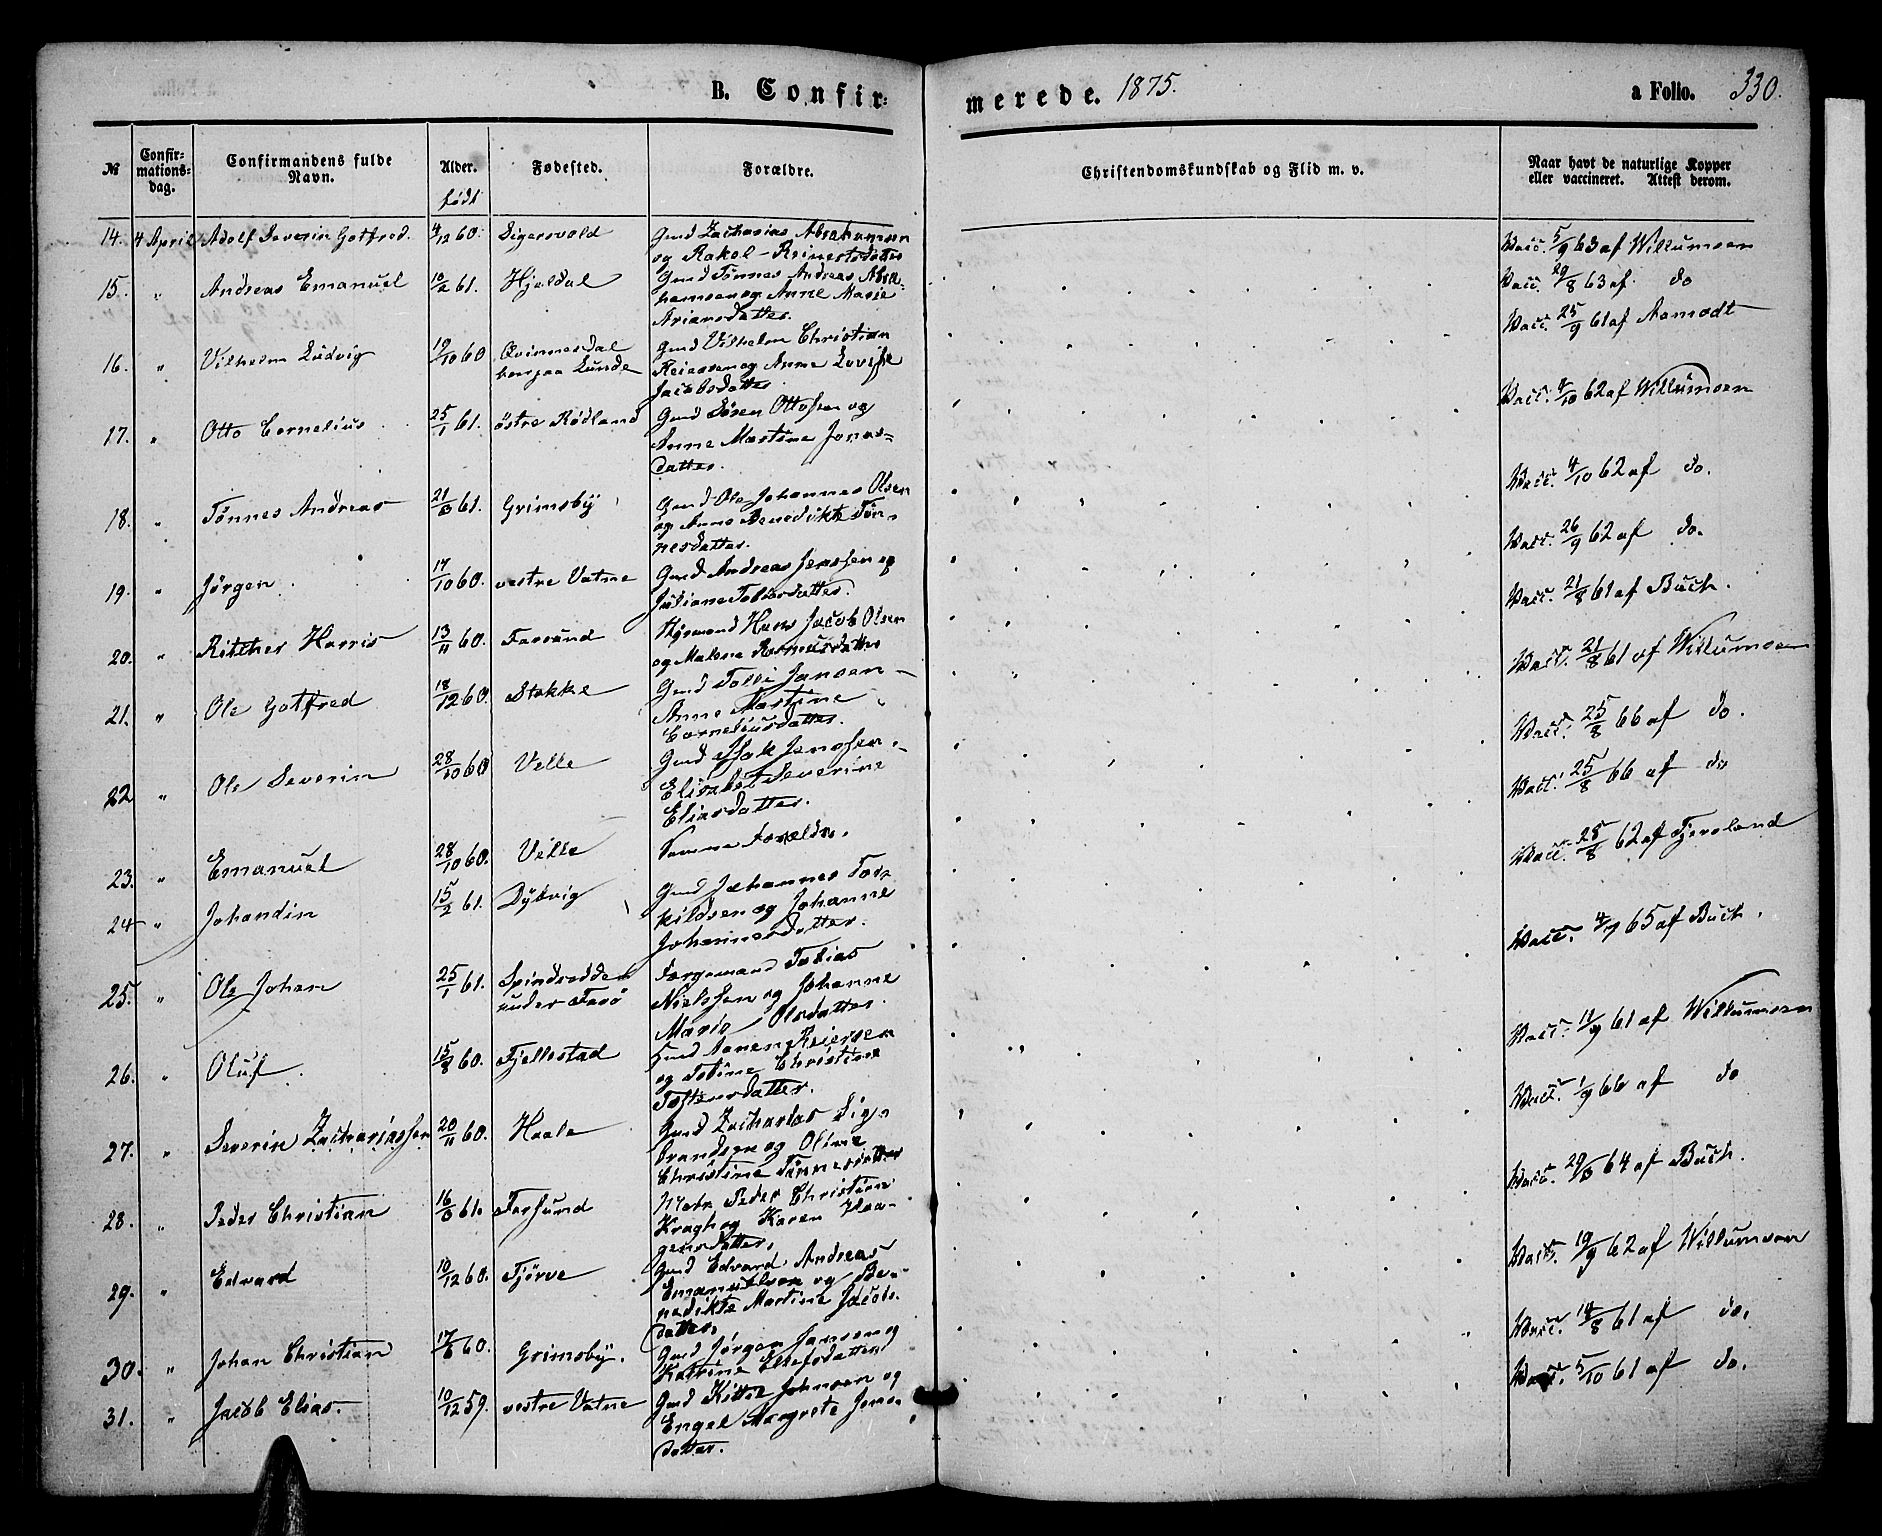 B. Confir-
merede. 1875.
a Folio. 330.
№
Confir-
mations-
dag.
Confirmandens fulde
Navn.
Alder.
født
Fødested.
Forældre.
Christendomskundskab og Flid m. v.
Naar havt de naturlige Kopper
eller vaccineret. Attest derom.
14. 4 April Adolf Severin Gotfred. 4/12 60. Sigersvold Gmd Zacharias Abrahamsen
og Rakel Reinertsdatter
Vacc. 5/9 63 af Willumsen
15. " Andreas Emanuel 10/2 61. Hjeldal Gmd Tønnes Andreas Abra-
hamsen og Anne Marie
Ariansdatter.
Vacc. 29/8 63 af. do
16. " Vilhelm Ludvig 19/10 60 Qvinnesdal
herpaa Lunde
Gmd Vilhelm Christian
Reiersen og Anne Lovise
Jacobsdatter
Vacc. 25/9 61 af Aamodt
17. " Otto Cornelius 25/1 61. østre Rødland Gmd Søren Ottosen og
Anne Martine Jonas-
datter.
Vacc. 4/10 62 af Willumsen
18. " Tønnes Andreas 21/3 61. Grimsby Gmd Ole Johannes Olsen
og Anne Benedikte Tøn-
nesdatter.
Vacc. 4/10 62 af do.
19. " Jørgen 17/10 60. vestre Vatne Gmd Andreas Jenssen og
Juliane Tobiasdatter.
Vacc. 26/9 62 af do.
20. " Ritcher Harris 13/11 60. Farsund Styrmand Hans Jacob Olsen
og Malene
Vacc. 21/8 61 af Buch.
21. " Ole Gotfred 18/12 60. Stokke Gmd Tolli Jansen
Anne Martine
Corneliusdatter.
Vacc. 21/8 61 af Willumsen
22 " Ole Severin 28/10 60 Velle Gmd Isak Jenssen
Elisabet Severine
Eliasdatter.
Vacc. 25/8 66 af do.
23. " Emanuel 28/10 60. Velle Samme Forældre.
Vacc. 25/8 66 af do
24 " Johandin 15/2 61. Dybvig Gmd Johannes Tor-
kildsen og Johanne
Johannesdatter.
Vacc. 25/8 62 af Fjereland
25. " Ole Johan 25/1 61. Spindsodden
under Farø
Færgemand Tobias
Nielssen og Johanne
Marie Olsdatter.
Vacc. 4/7 65 af Buch.
26. " Oluf 15/8 60. Fjellestad Gmd Aanen Reiersen
og Tobine Christine
Vacc. 11/9 61 af Willumsen
27. " Severin Zachariassen 20/11 60. Haale Gmd Zacharias Sig-
brandsen og Oline
Christine Tønnesdatter
Vacc. 1/9 66 af do
28. " Peder Christian 16/3 61. Farsund Matr. Peder Christian
Kragh og Karen Haa-
gensdatter.
Vacc. 29/8 64 af Buch.
29. " Edvard 10/12 60. Tjørve Gmd Edvard Andreas
Emanuelsen og Be-
nedikte Martine Jacobs-
datter.
Vacc. 19/9 62 af Willumsen
30. " Johan Christian 17/8 60. Grimsby. Gmd Jørgen Jansen og
Katrine Ellefsdatter
Vacc. 14/8 61 af do.
31. " Jacob Elias. 10/12 59. vestre Vatne Gmd Kittel Johnsen og
Engel Margrete Jens-
datter.
Vacc. 5/10 61 af do.